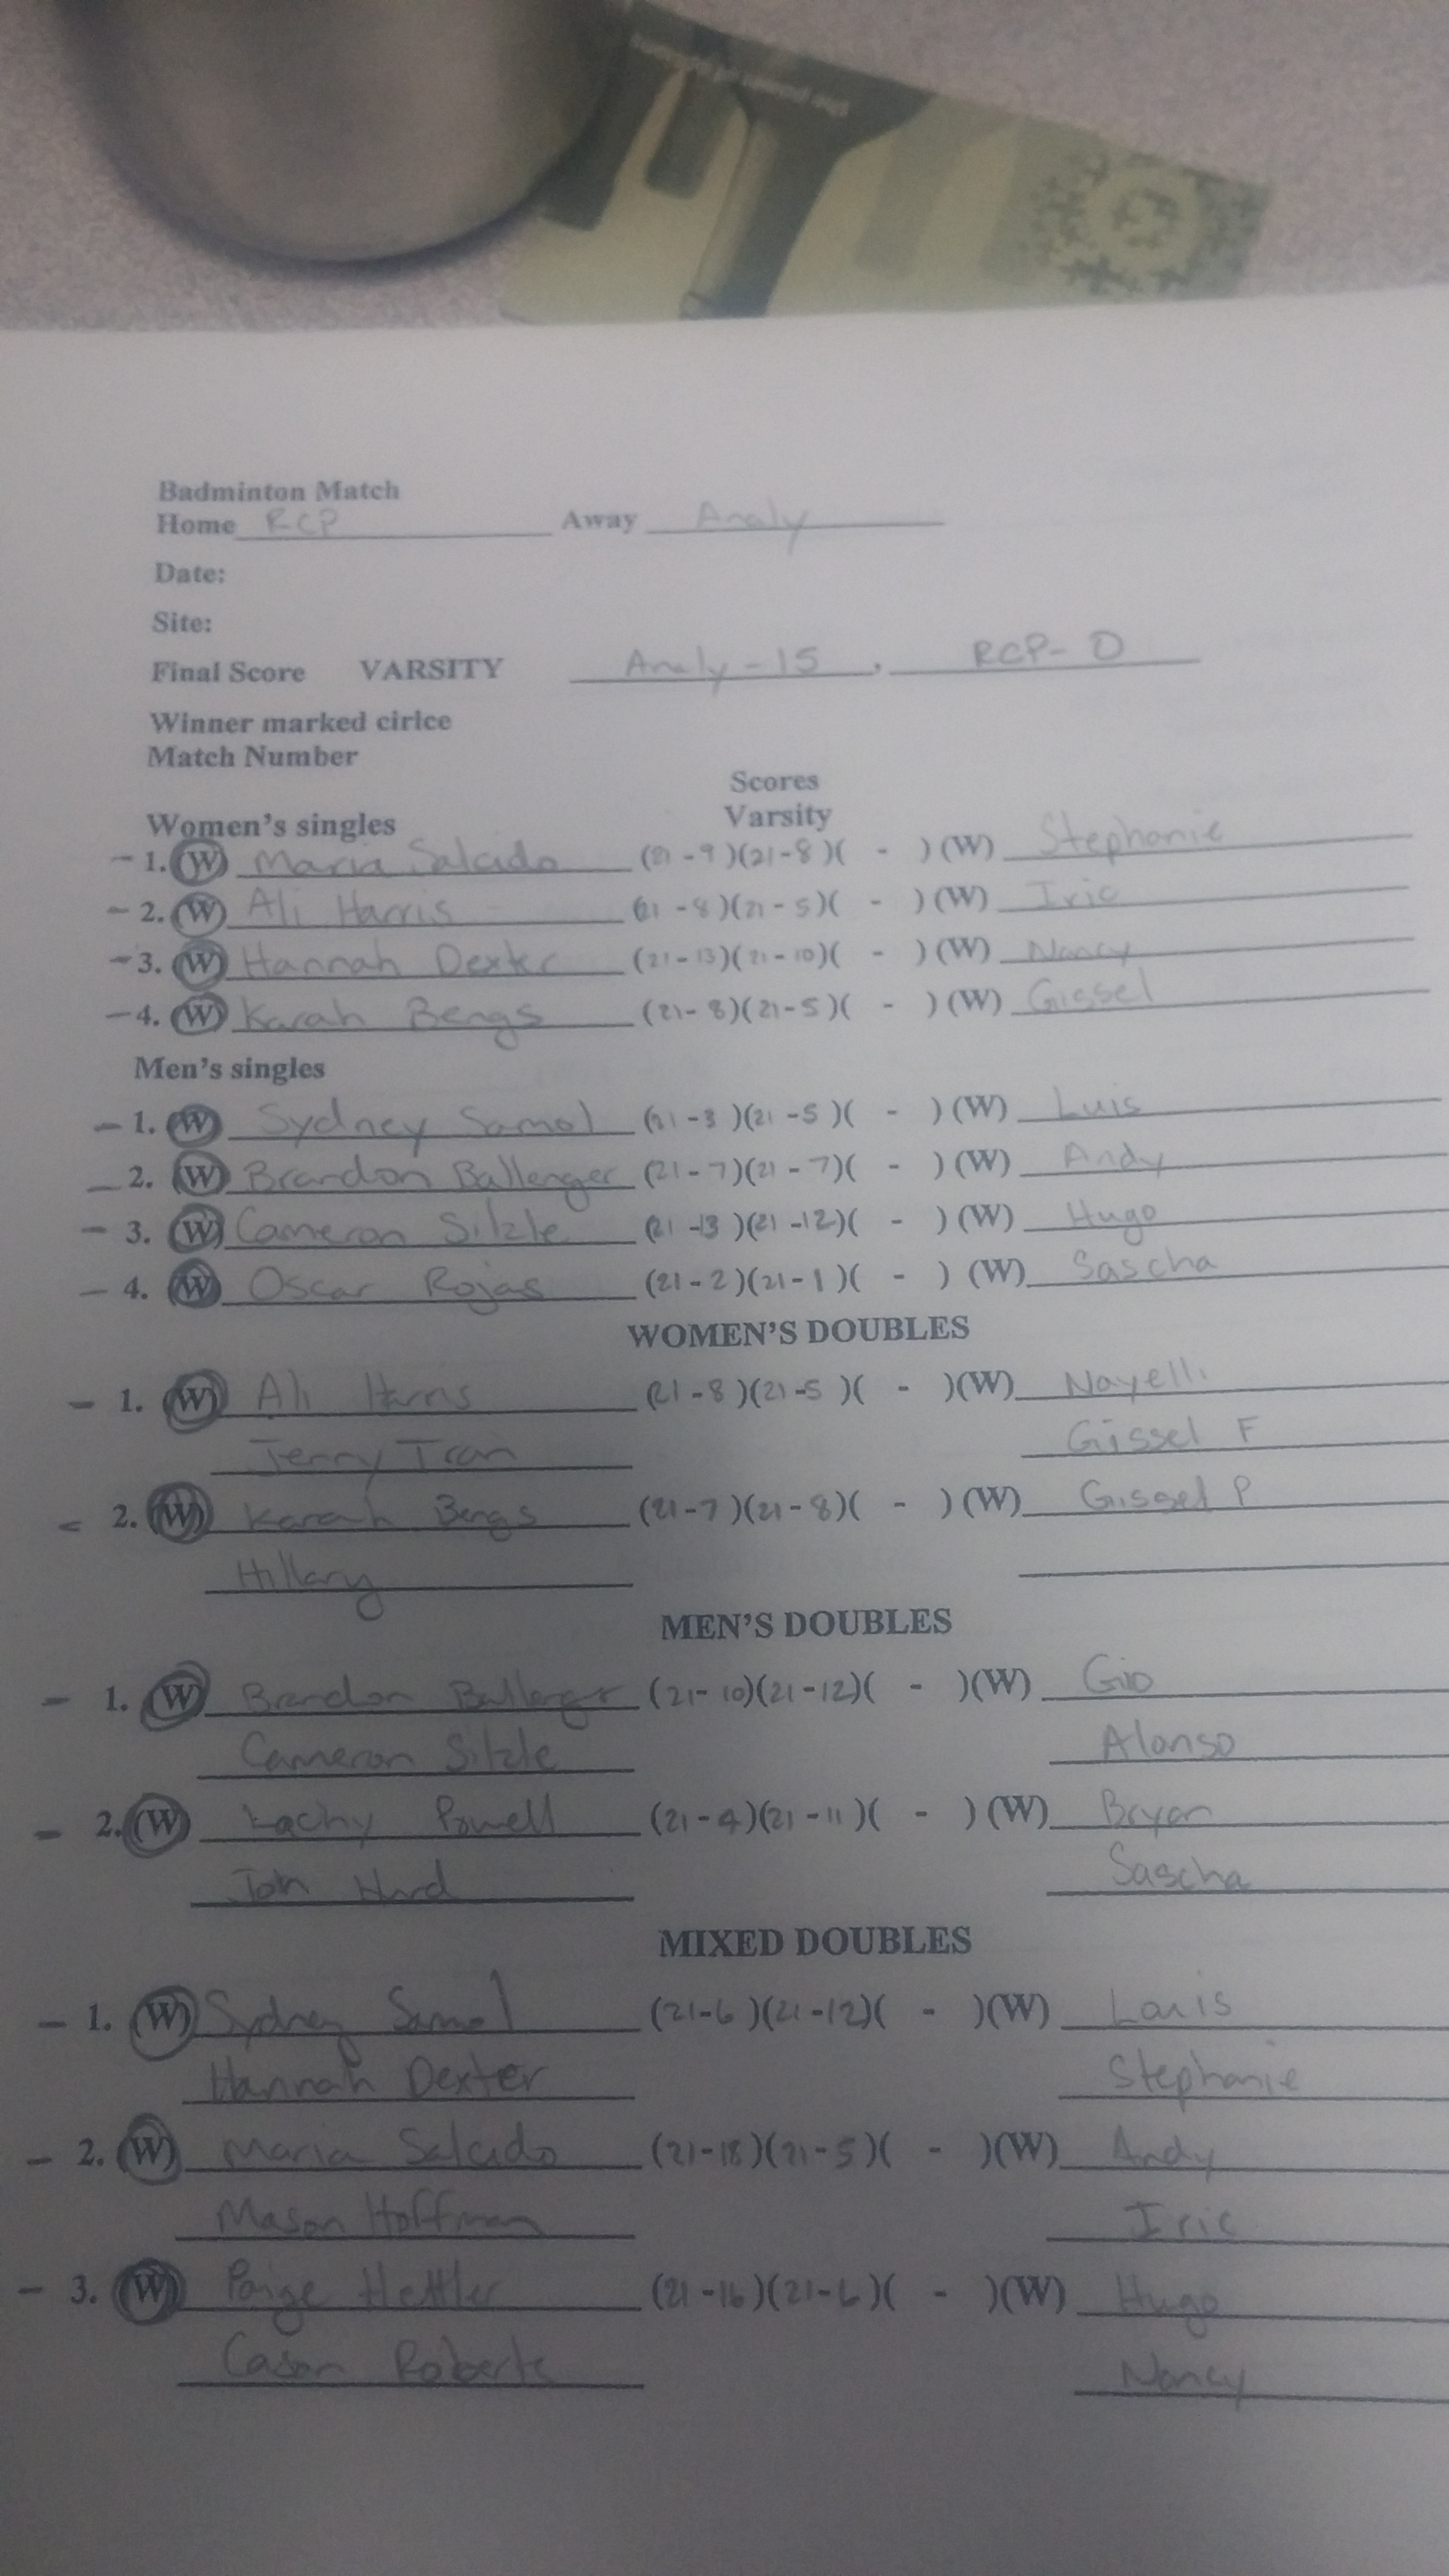 Badminton Match
Home RCP Away Analy
Date:
Site:
Final Score VARSITY Analy-15, RCP-0
Winner marked cirlce
Match Number
Scores
Women's singles Varsity
- 1. (W) Maria Salcido (21-9)(21-8)( - ) (W) Stephanie
- 2. (W) Ali Harris (21-8)(21-5)( - ) (W) Iric
- 3. (W) Hannah Dexter (21-13)(21-10)( - ) (W) Nancy
- 4. (W) Karah Bengs (21-8)(21-5)( - ) (W) Gissel
Men's singles
- 1. (W) Sydney Samol (21-3)(21-5)( - ) (W) Luis
- 2. (W) Brandon Ballenger (21-7)(21-7)( - ) (W) Andy
- 3. (W) Cameron Silzle (21-13)(21-12)( - ) (W) Hugo
- 4. (W) Oscar Rojas (21-2)(21-1)( - ) (W) Sascha
WOMEN'S DOUBLES
- 1. (W) Ali Harris (21-8)(21-5)( - )(W) Nayelli
Jenny Tran Gissel F
- 2. (W) Karah Bengs (21-7)(21-8)( - ) (W) Gissel P
Hillary
MEN'S DOUBLES
- 1. (W) Brandon Ballenger (21-10)(21-12)( - )(W) Gio
Cameron Silzle Alonso
- 2. (W) Powell (21-4)(21-11)( - ) (W) Bryan
Sascha
MIXED DOUBLES
- 1. (W) Sydney Samol (21-6)(21-12)( - )(W) Lauis
Hannah Dexter Stephanie
- 2. (W) Maria Salcido (21-18)(21-5)( - )(W) Andy
Mason Hoffman Iric
- 3. (W) Paige Hettler (21-16)(21-6)( - )(W) Hugo
Cason Roberts Nancy